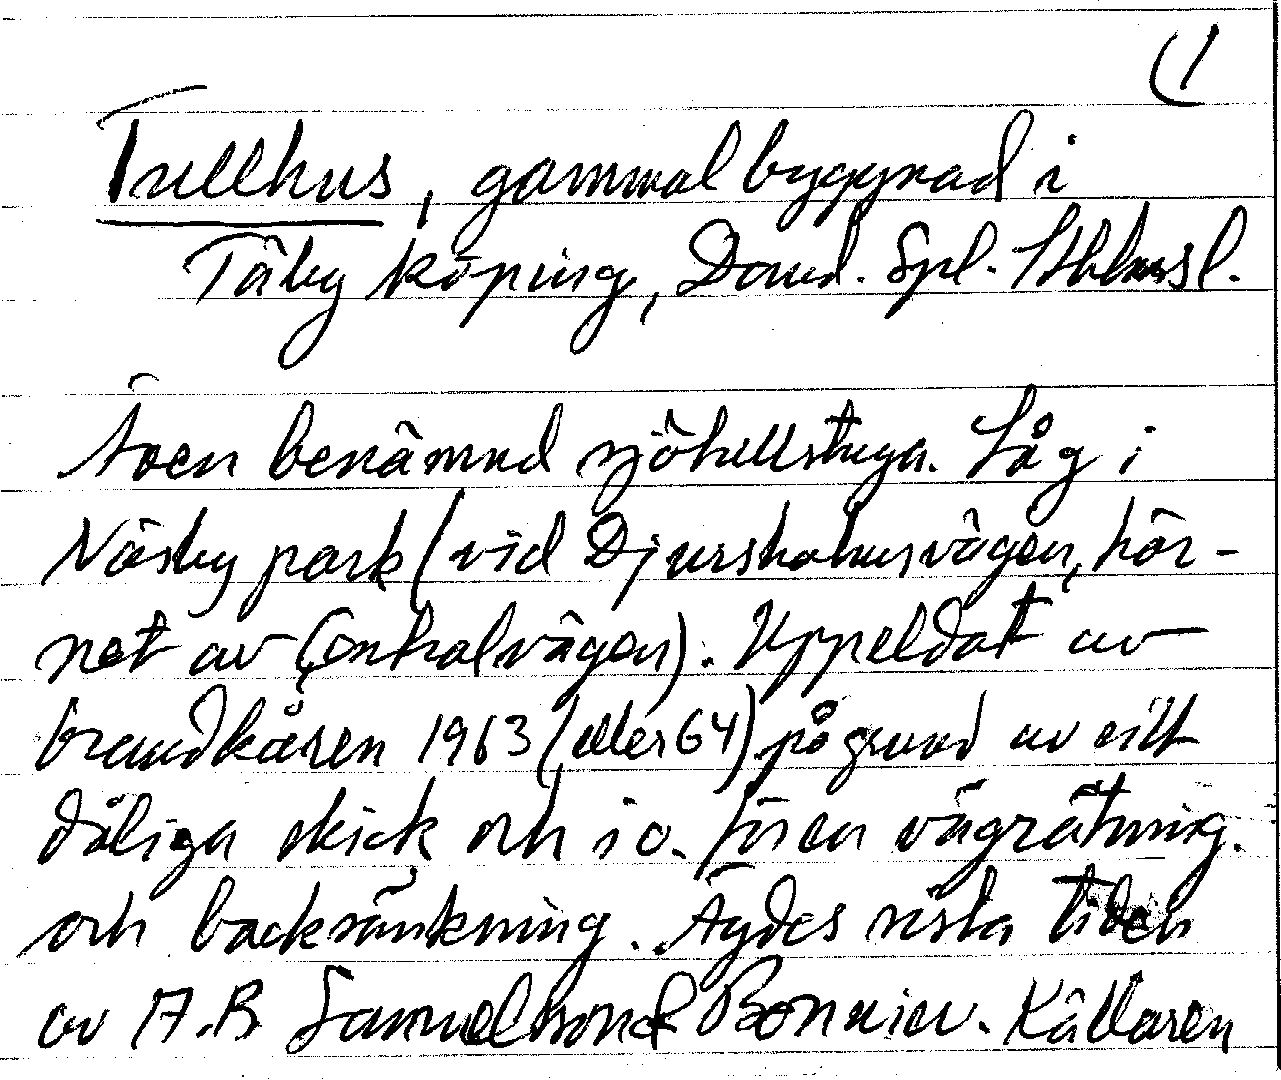 (1
Tullhus, gammal byggnad i
Täby köping, Dand. Spl. Sthlmsl.
Även benämnd sjötullstuga. Låg i
Näsby park (vid Djursholmsvägen, hör-
net av Centralvägen). Uppeldat av
brandkåren 1963 (eller 64) på grund av sitt
dåliga skick och i o. för en vägrätning.
och backsänkning. Ägdes sista tiden
av A.B. Samuelson & Bonnier. Källaren